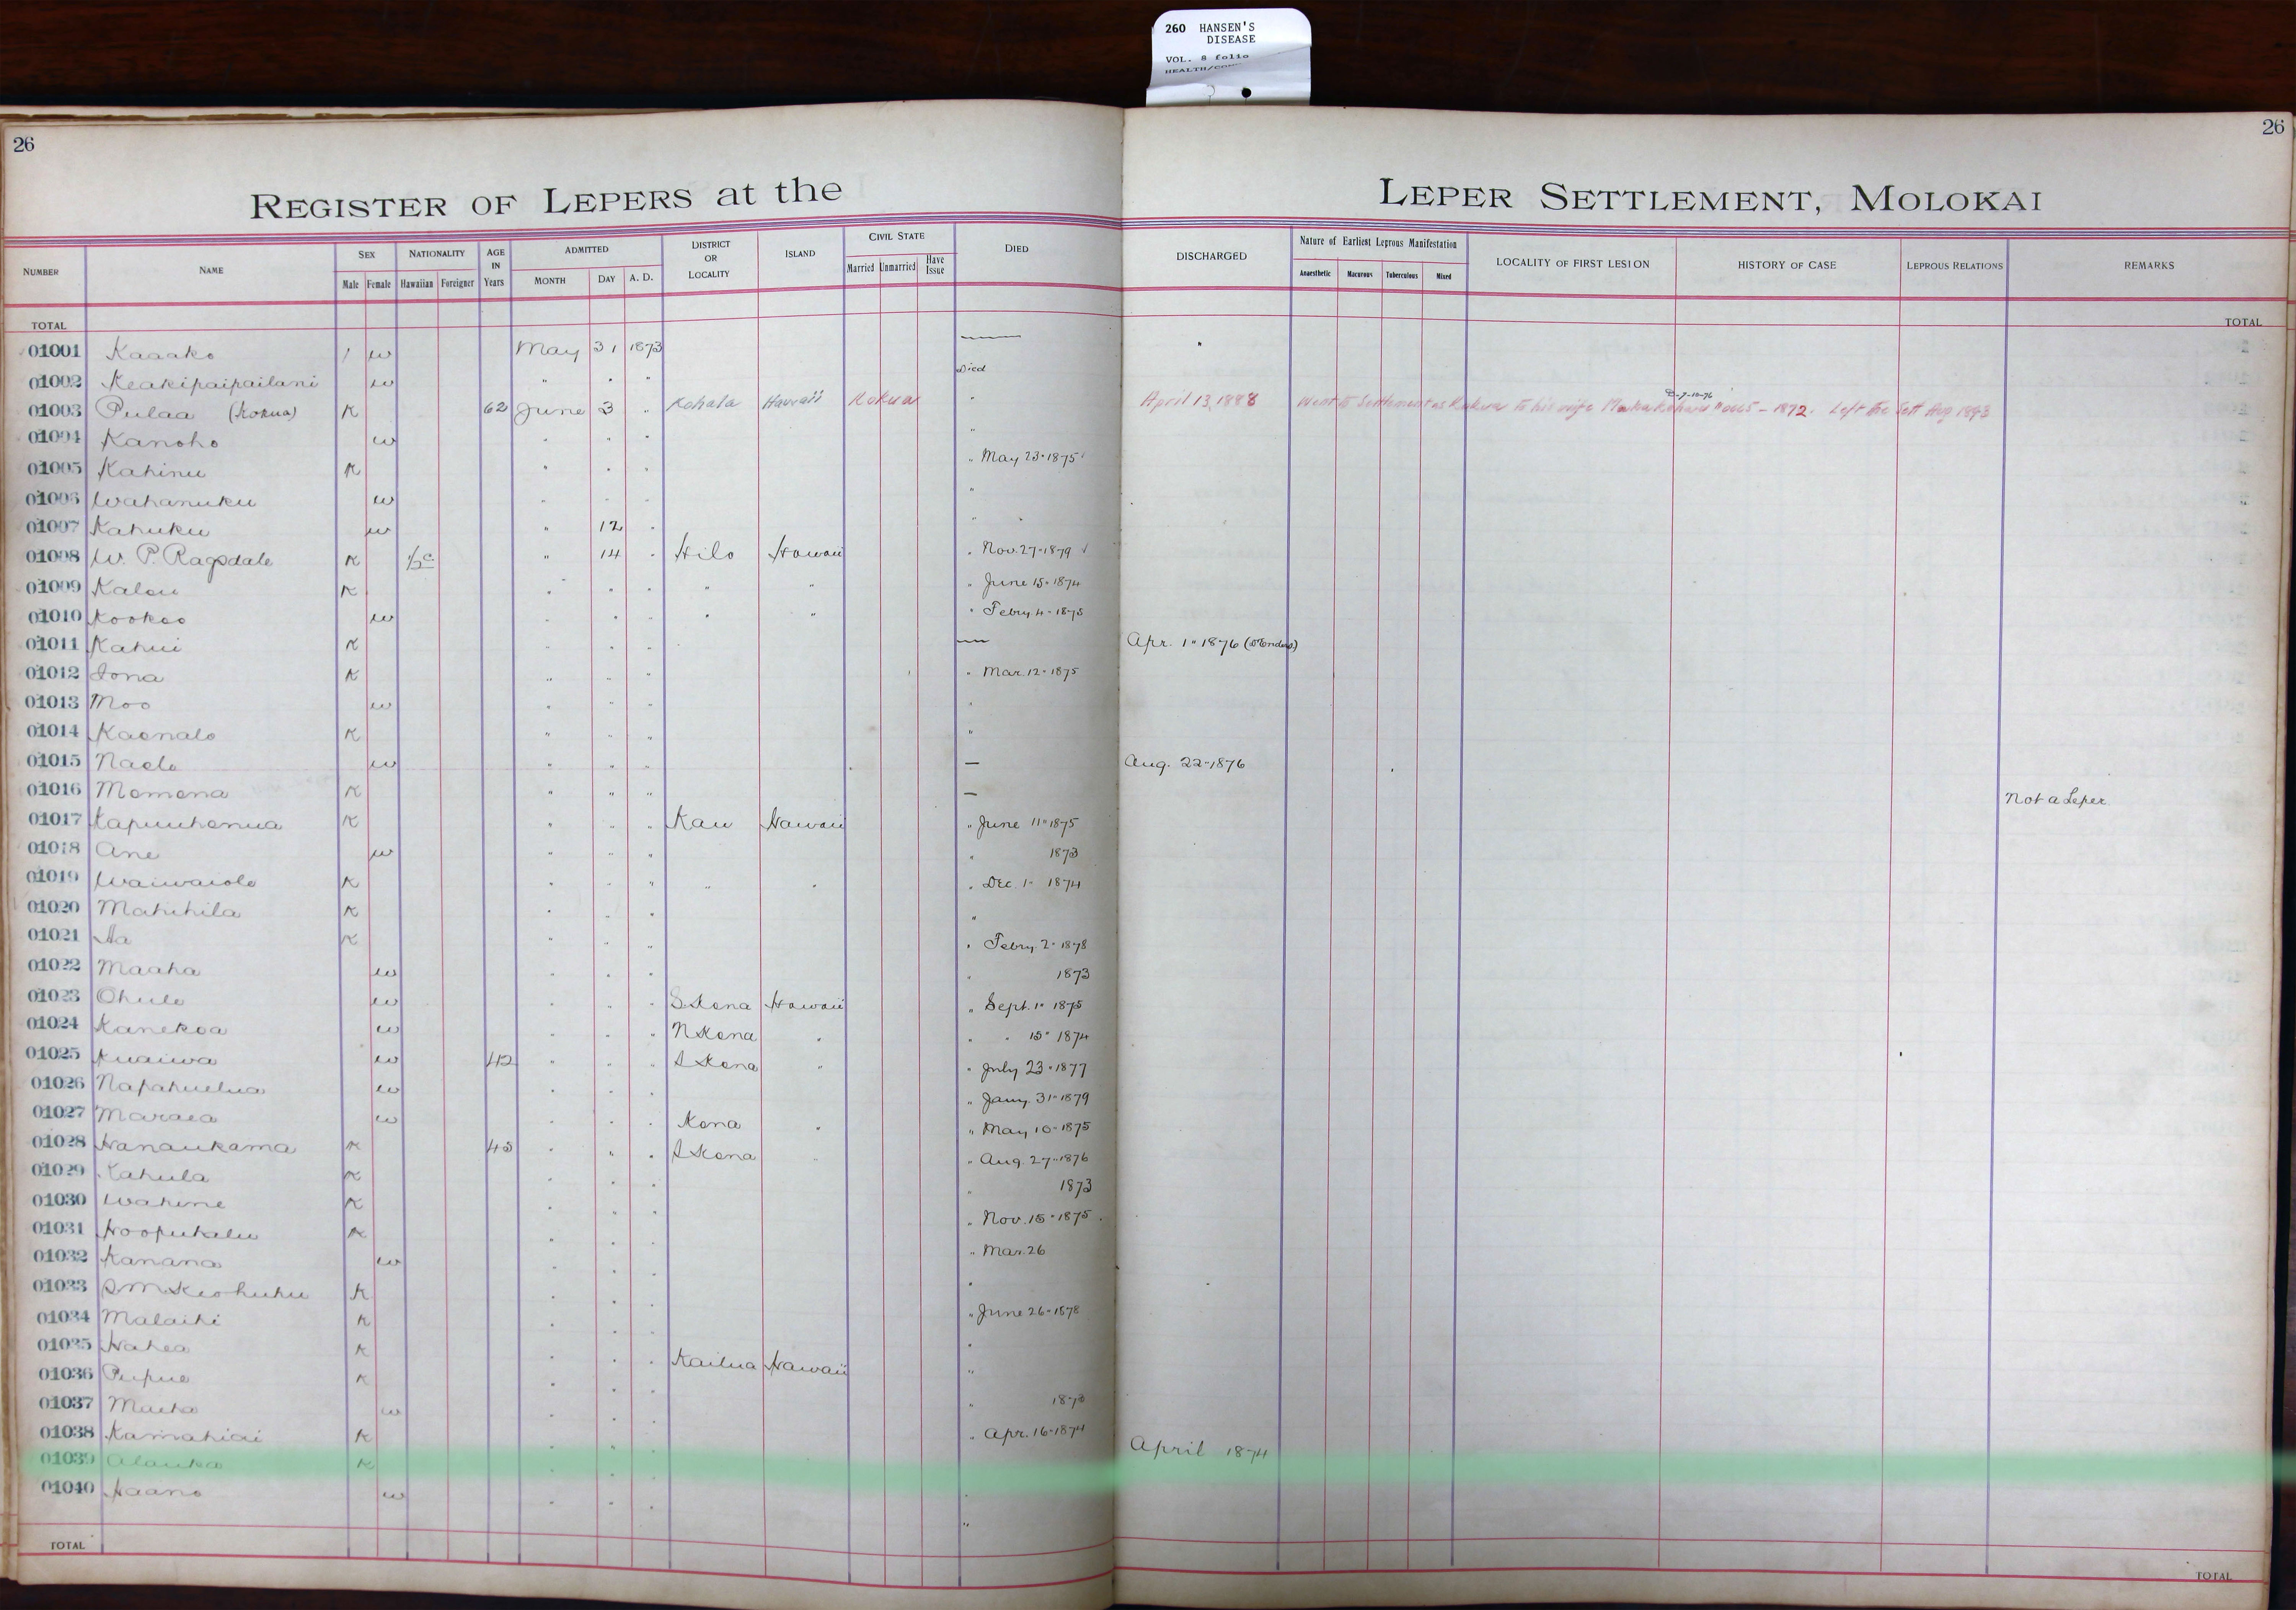 260 HANSEN'S
DISEASE
VOL. 8 folio
26
26
REGISTER OF LEPERS at the LEPER SETTLEMENT, MOLOKAI
NUMBER NAME SEX Male Female NATIONALITY Hawaiian Foreigner AGE IN Years ADMITTED MONTH DAY A. D. DISTRICT OR LOCALITY ISLAND CIVIL STATE Married Unmarried Have Issue DIED DISCHARGED Nature of Earliest Leprous Manifestation Anaesthetic Macurous Tuberculous Mixed LOCALITY OF FIRST LESION HISTORY OF CASE LEPROUS RELATIONS REMARKS
TOTAL TOTAL
01001 Kaaako / w May 31 1873 — "
01002 Keakipaipailani w " " " Died
01003 Pulaa (Kokua) K 62 June 3 " Kohala Hawaii Kokua " April 13, 1888 Went to Settlement as Kokua to his wife 1872. Left the Sett Aug 1893
01004 Kanoho w " " " "
01005 Kahinu K " " " " May 23" 1875
01006 Wahanuku w " " " "
01007 Kahuku w " 12 " "
01008 W. P. Ragsdale K 1/2 c " 14 " Hilo Hawaii " Nov. 27" 1879
01009 Kalou K " " " " " " June 15" 1874
01010 Kookoo w " " " " " " Febry. 4" 1875
01011 Kahui K " " " — Apr. 1" 1876
01012 Iona K " " " " Mar. 12" 1875
01013 Moo w " " " "
01014 Kaonalo K " " " "
01015 Naelo w " " " — Aug. 22" 1876
01016 Momona K " " " — Not a Leper
01017 Kapuuhonua K " " " Kau Hawaii " June 11" 1875
01018 Ane w " " " " 1873
01019 Waiwaiole K " " " " " " Dec. 1" 1874
01020 Mahihila K " " " "
01021 Aa K " " " " Febry. 2" 1878
01022 Maaha w " " " " 1873
01023 Ohule w " " " S. Kona Hawaii " Sept. 1" 1875
01024 Kanekoa w " " " N Kona " " " 15" 1874
01025 Kuaiwa w 42 " " " S Kona " " July 23" 1877
01026 Napahuelua w " " " " Jany. 31" 1879
01027 Maraea w " " " Kona " " May 10" 1875
01028 Hanaukama K 45 " " " S Kona " " Aug. 27" 1876
01029 Kahula K " " " " 1873
01030 Wahine K " " " " Nov. 15" 1875
01031 Hoopukalu K " " " " Mar. 26
01032 Kanana w " " " "
01033 S M Keohuhu K " " " " June 26" 1878
01034 Malaihi K " " " "
01035 Hahea K " " " Kailua Hawaii "
01036 Pupue K " " " " 1873
01037 Maeha w " " " " Apr. 16" 1874
01038 Kamahiai K " " " April 1874
01039 Alauka K " " " "
01040 Haano w " " " "
TOTAL TOTAL